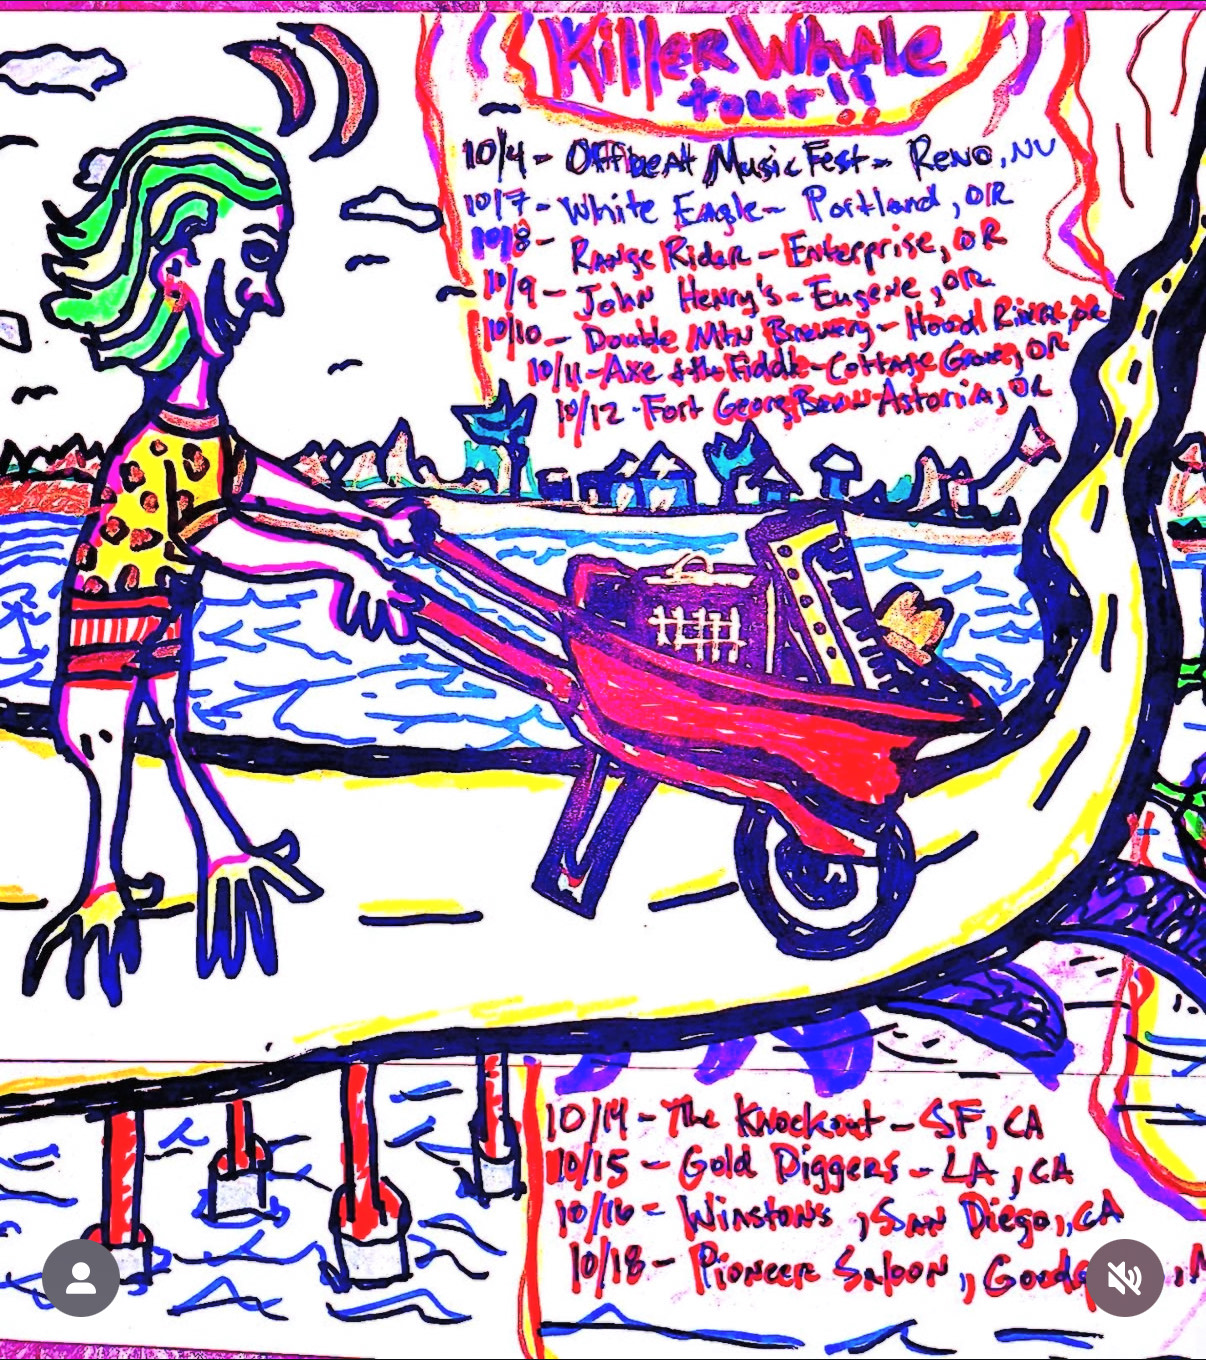 Killer Whale
tour!!
10/4 - Offbeat Music Fest - Reno, NV
10/7 - White Eagle - Portland, OR
10/8 - Range Rider - Enterprise, OR
10/9 - John Henry's - Eugene, OR
10/10 - Double Mtn Brewery - Hood River, OR
10/11 - Axe & the Fiddle - Cottage Grove, OR
10/12 - Fort George Brew - Astoria, OR
10/14 - The Knockout - SF, CA
10/15 - Gold Diggers - LA, CA
10/16 - Winstons, San Diego, CA
10/18 - Pioneer Saloon,